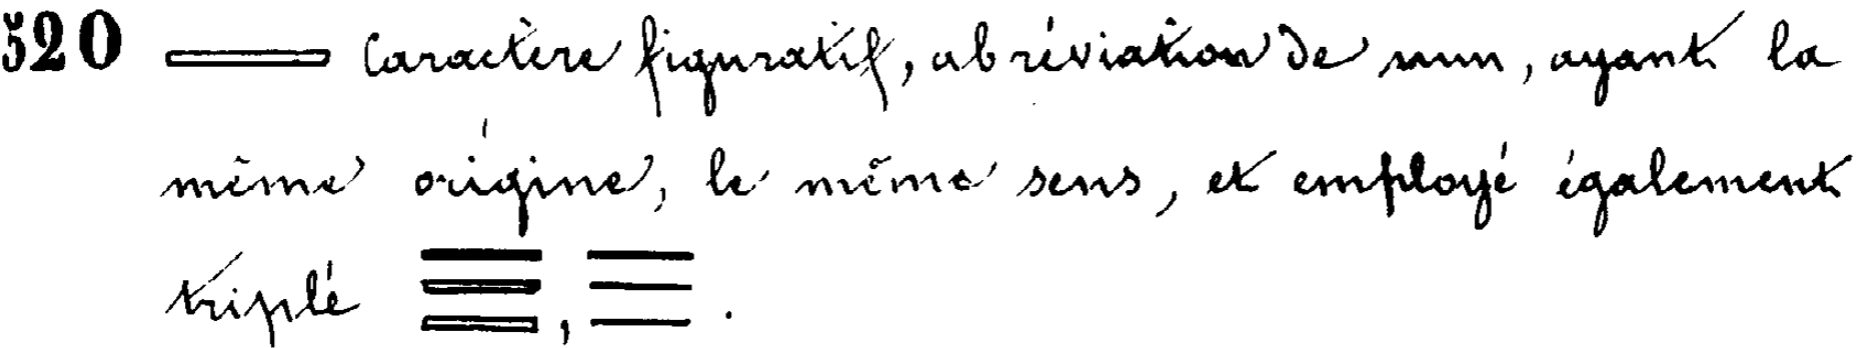 520 Caractère figuratif, abréviation de nun, ayant la
même origine, le même sens, et employé également
triplé , .